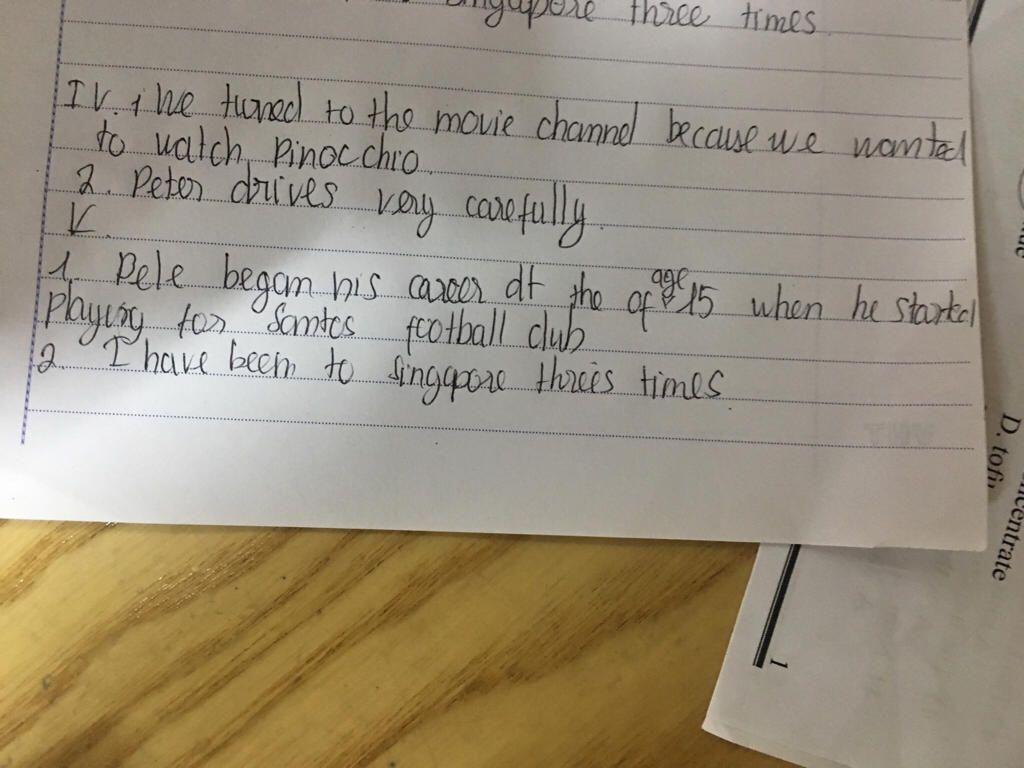 Singapore three times
IV. 1 We turned to the movie channel because we wanted
to watch Pinocchio.
2. Peter drives very carefully.
V.
1. Pele began his career at the of age 15 when he started
playing for Santos football club
2. I have been to Singapore threes times.
ncentrate
D. tofu
1